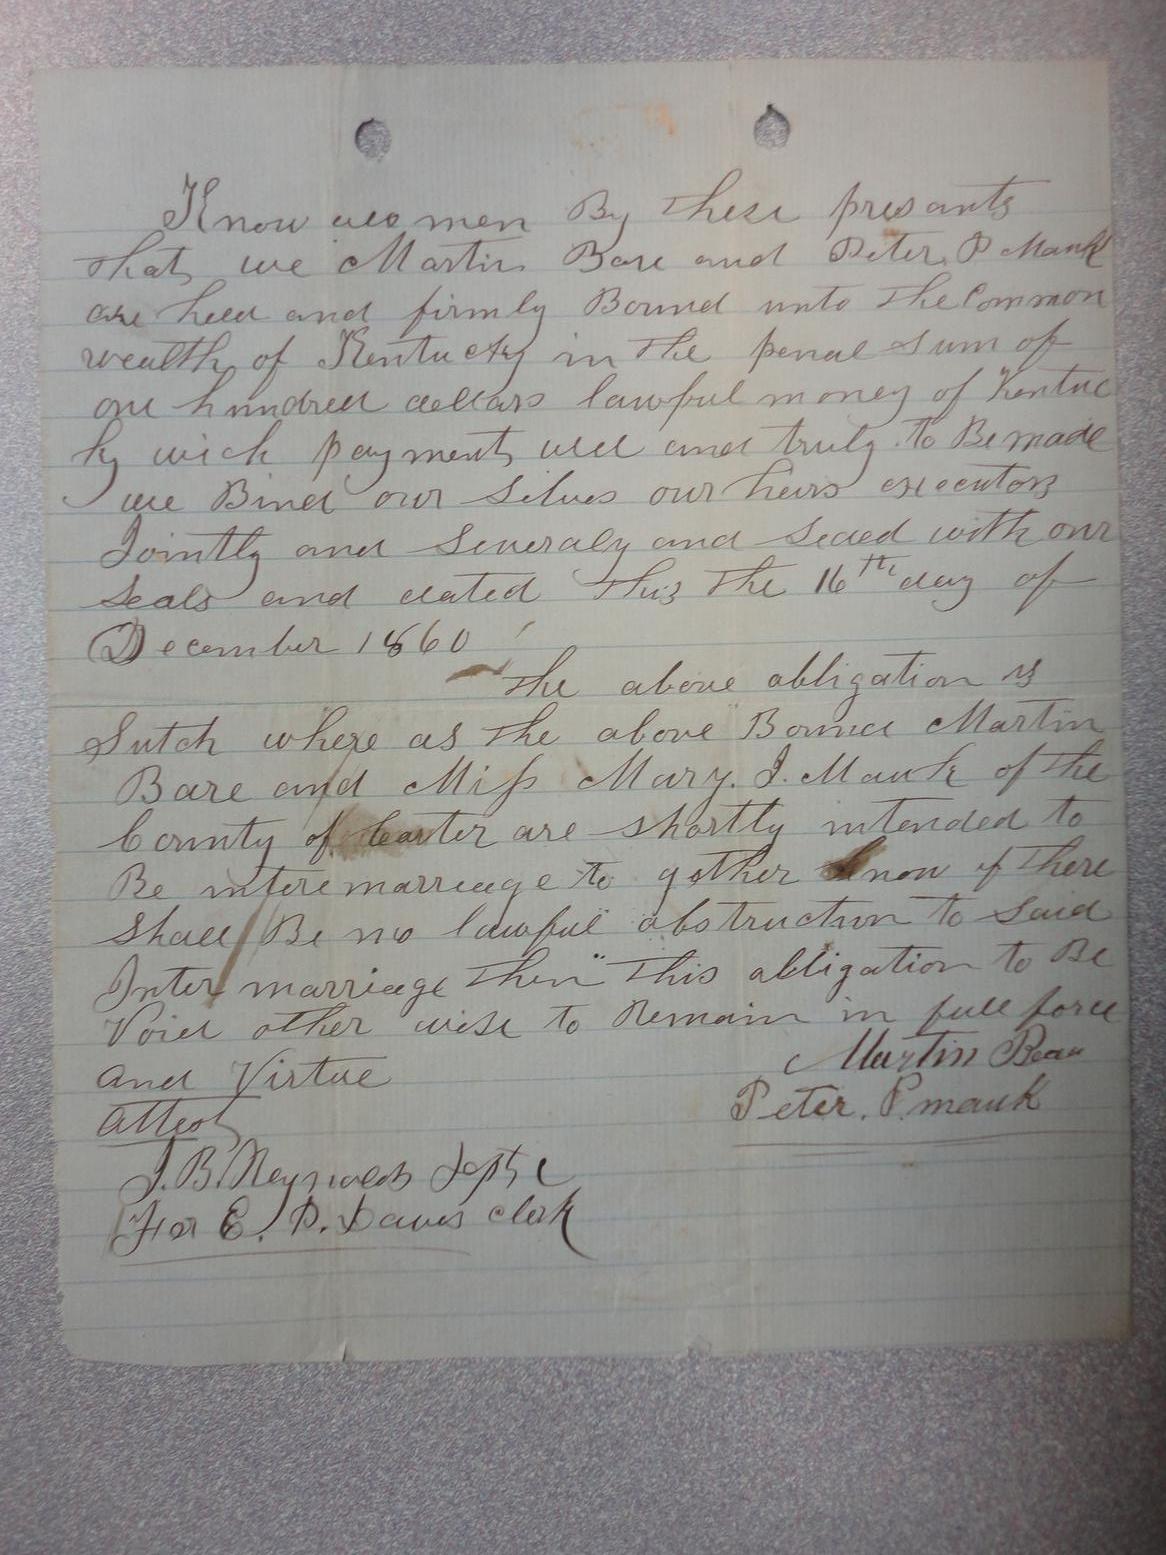 Know all men By these presants
that we Martin Bare and Peter P Mauk
are held and firmly Bound unto the Common
wealth of Kentucky in the penal sum of
one hundred dollars lawful money of Kentuc
ky wich payment well and truly to Be made
we Bind our selves our heirs executors
Jointly and Severaly and sealed with our
seals and dated this the 16th day of
December 1860
the above obligation is
Sutch where as the above Bound Martin
Bare and Miss Mary. J. Mauk of the
County of Carter are shortly intended to
Be intere marriage to gether know if there
shall Be no lawful abstruction to said
Inter marriage then this obligation to Be
Void other wise to Remain in full force
and Virtue
Martin Bear
Peter. P. mauk
attest
J. B. Reynolds Depty C
For E. D. Davis clerk